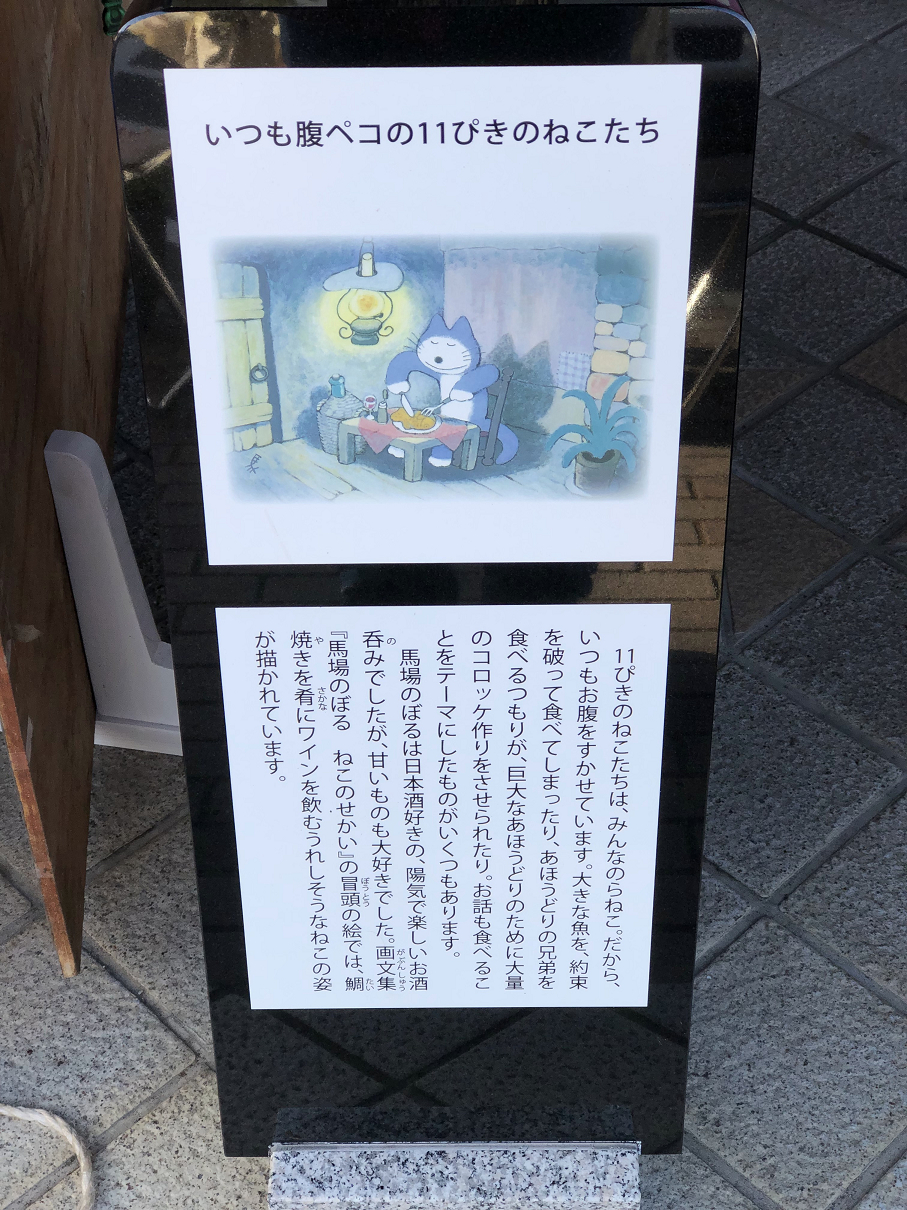 いつも腹ペコの11ぴきのねこたち
11ぴきのねこたちは、みんなのらねこ。だから、
いつもお腹をすかせています。大きな魚を、約束
を破って食べてしまったり、あほうどりの兄弟を
食べるつもりが、巨大なあほうどりのために大量
のコロッケ作りをさせられたり。お話も食べるこ
とをテーマにしたものがいくつもあります。
馬場のぼるは日本酒好きの、陽気で楽しいお酒
呑みでしたが、甘いものも大好きでした。画文集
『馬場のぼる　ねこのせかい』の冒頭の絵では、鯛
焼きを肴にワインを飲むうれしそうなねこの姿
が描かれています。